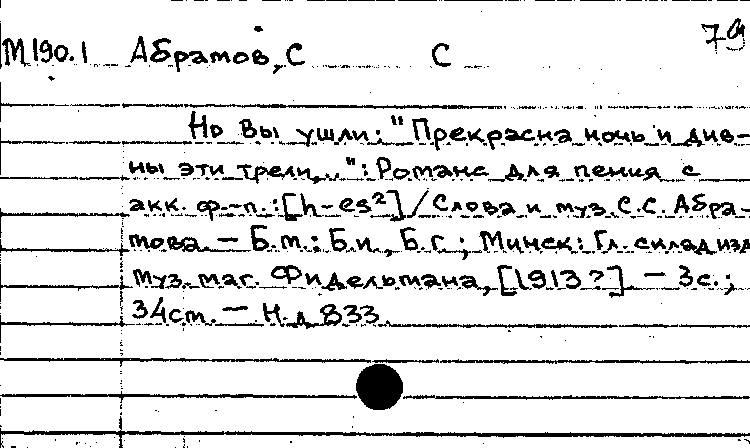 79
М190.1 Абрамов, С С
Но Вы ушли: "Прекрасна ночь и див-
ны эти трели,..": Романс для пения с
акк. ф.-п.: [h-es²] / Слова и муз. С.С. Абра-
мова. — Б.м.: Б.и., Б.г.; Минск: Гл. склад изд.
муз. маг. Фидельмана, [1913?]. — 3с.;
34cm. — Н.д 833.